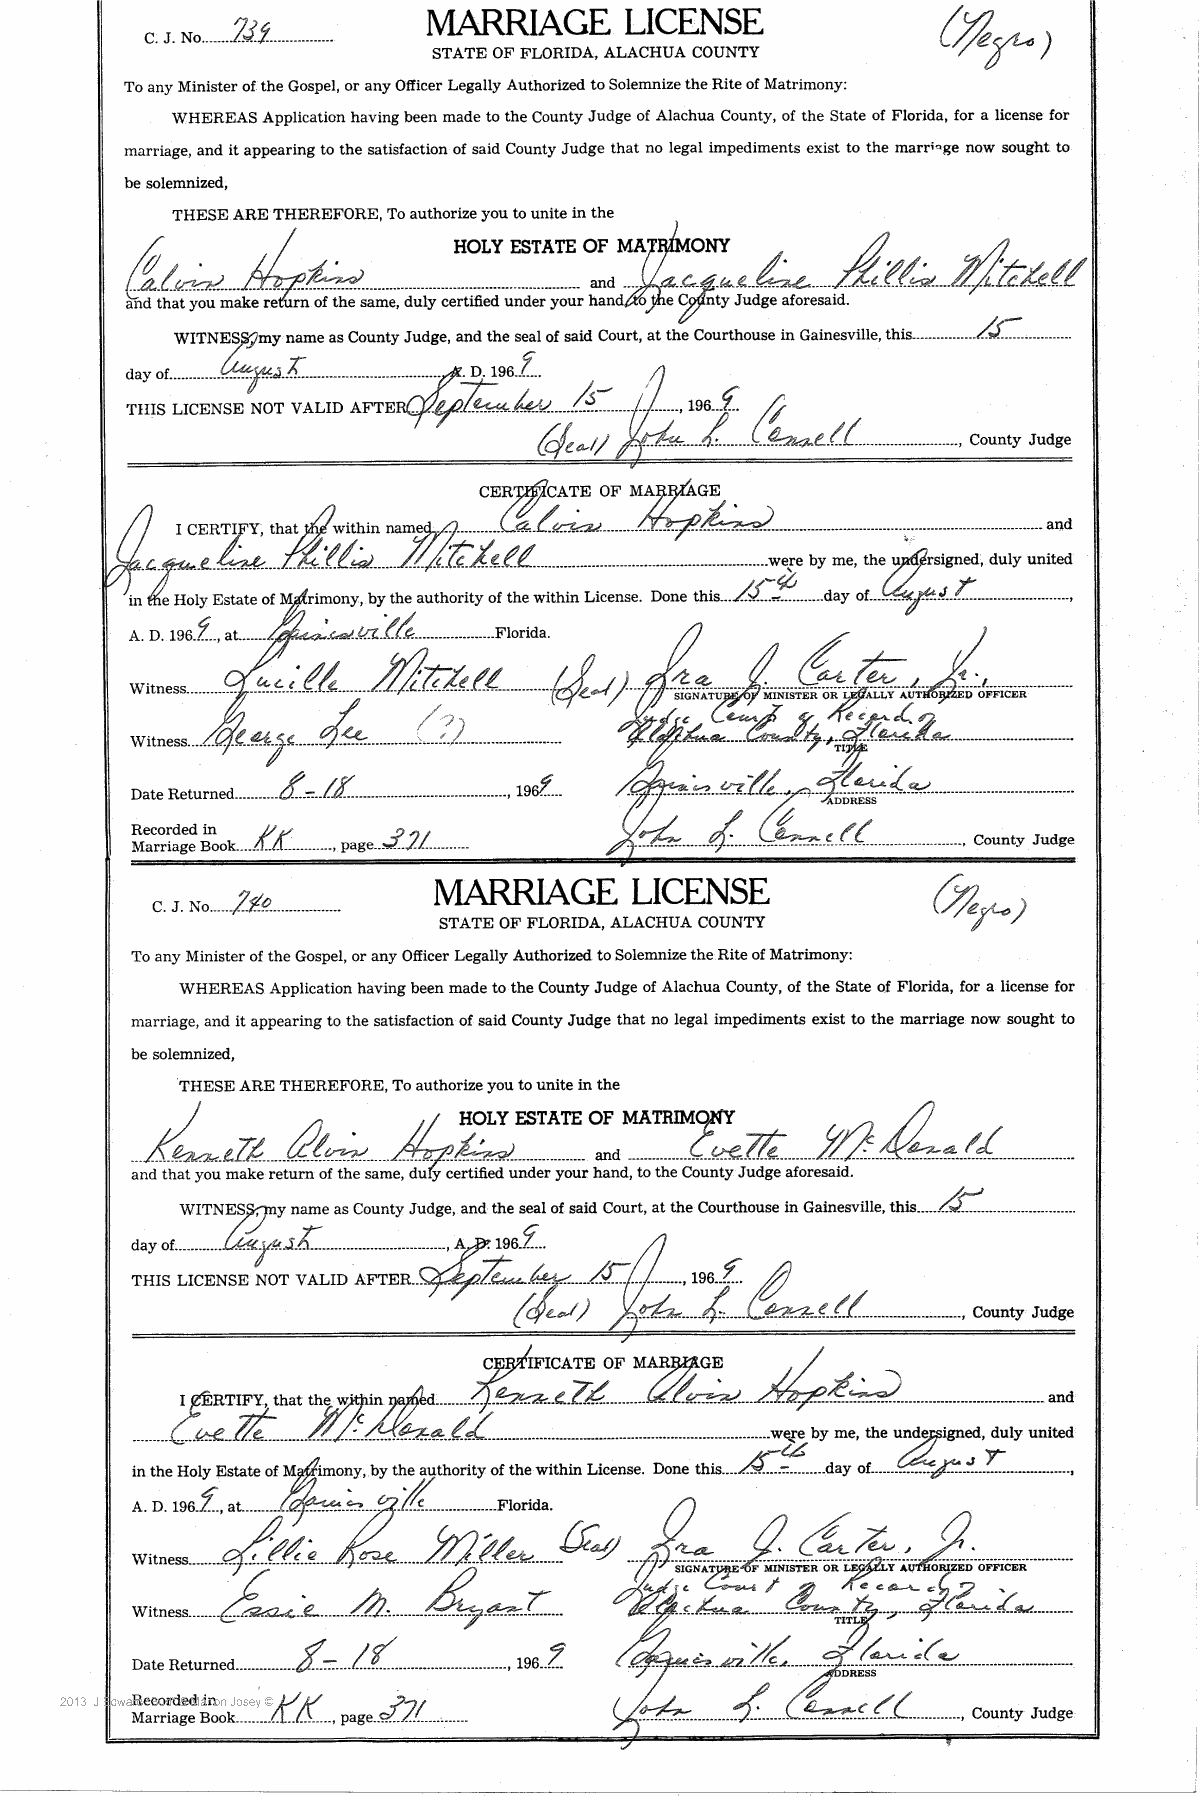 C. J. No. 739 MARRIAGE LICENSE (Negro)
STATE OF FLORIDA, ALACHUA COUNTY
To any Minister of the Gospel, or any Officer Legally Authorized to Solemnize the Rite of Matrimony:
WHEREAS Application having been made to the County Judge of Alachua County, of the State of Florida, for a license for
marriage, and it appearing to the satisfaction of said County Judge that no legal impediments exist to the marriage now sought to
be solemnized,
THESE ARE THEREFORE, To authorize you to unite in the
HOLY ESTATE OF MATRIMONY
Calvin Hopkins and Jacqueline Phillis Mitchell
and that you make return of the same, duly certified under your hand, to the County Judge aforesaid.
WITNESS, my name as County Judge, and the seal of said Court, at the Courthouse in Gainesville, this 15
day of August A. D. 1969
THIS LICENSE NOT VALID AFTER September 15, 1969
(Seal) John L. Connell, County Judge
CERTIFICATE OF MARRIAGE
I CERTIFY, that the within named Calvin Hopkins and
Jacqueline Phillis Mitchell were by me, the undersigned, duly united
in the Holy Estate of Matrimony, by the authority of the within License. Done this 15th day of August,
A. D. 1969, at Gainesville Florida.
Witness Lucille Mitchell (Seal) Ira J. Carter, Jr.,
SIGNATURE OF MINISTER OR LEGALLY AUTHORIZED OFFICER
Judge Court of Record of
Witness George Lee (?) Alachua County, Florida
TITLE
Date Returned 8-18, 1969 Gainesville, Florida
ADDRESS
Recorded in
Marriage Book KK, page 371 John L. Connell, County Judge
C. J. No. 740 MARRIAGE LICENSE (Negro)
STATE OF FLORIDA, ALACHUA COUNTY
To any Minister of the Gospel, or any Officer Legally Authorized to Solemnize the Rite of Matrimony:
WHEREAS Application having been made to the County Judge of Alachua County, of the State of Florida, for a license for
marriage, and it appearing to the satisfaction of said County Judge that no legal impediments exist to the marriage now sought to
be solemnized,
THESE ARE THEREFORE, To authorize you to unite in the
HOLY ESTATE OF MATRIMONY
Kenneth Alvin Hopkins and Evette McDonald
and that you make return of the same, duly certified under your hand, to the County Judge aforesaid.
WITNESS, my name as County Judge, and the seal of said Court, at the Courthouse in Gainesville, this 15
day of August, A. D. 1969
THIS LICENSE NOT VALID AFTER September 15, 1969
(Seal) John L. Connell, County Judge
CERTIFICATE OF MARRIAGE
I CERTIFY, that the within named Kenneth Alvin Hopkins and
Evette McDonald were by me, the undersigned, duly united
in the Holy Estate of Matrimony, by the authority of the within License. Done this 15th day of August,
A. D. 1969, at Gainesville Florida.
Witness Lillie Rose Miller (Seal) Ira J. Carter, Jr.
SIGNATURE OF MINISTER OR LEGALLY AUTHORIZED OFFICER
Judge Court of Record of
Witness Essie M. Bryant Alachua County, Florida
TITLE
Date Returned 8-18, 1969 Gainesville, Florida
ADDRESS
2013 Josey ©
Recorded in
Marriage Book KK, page 371 John L. Connell, County Judge